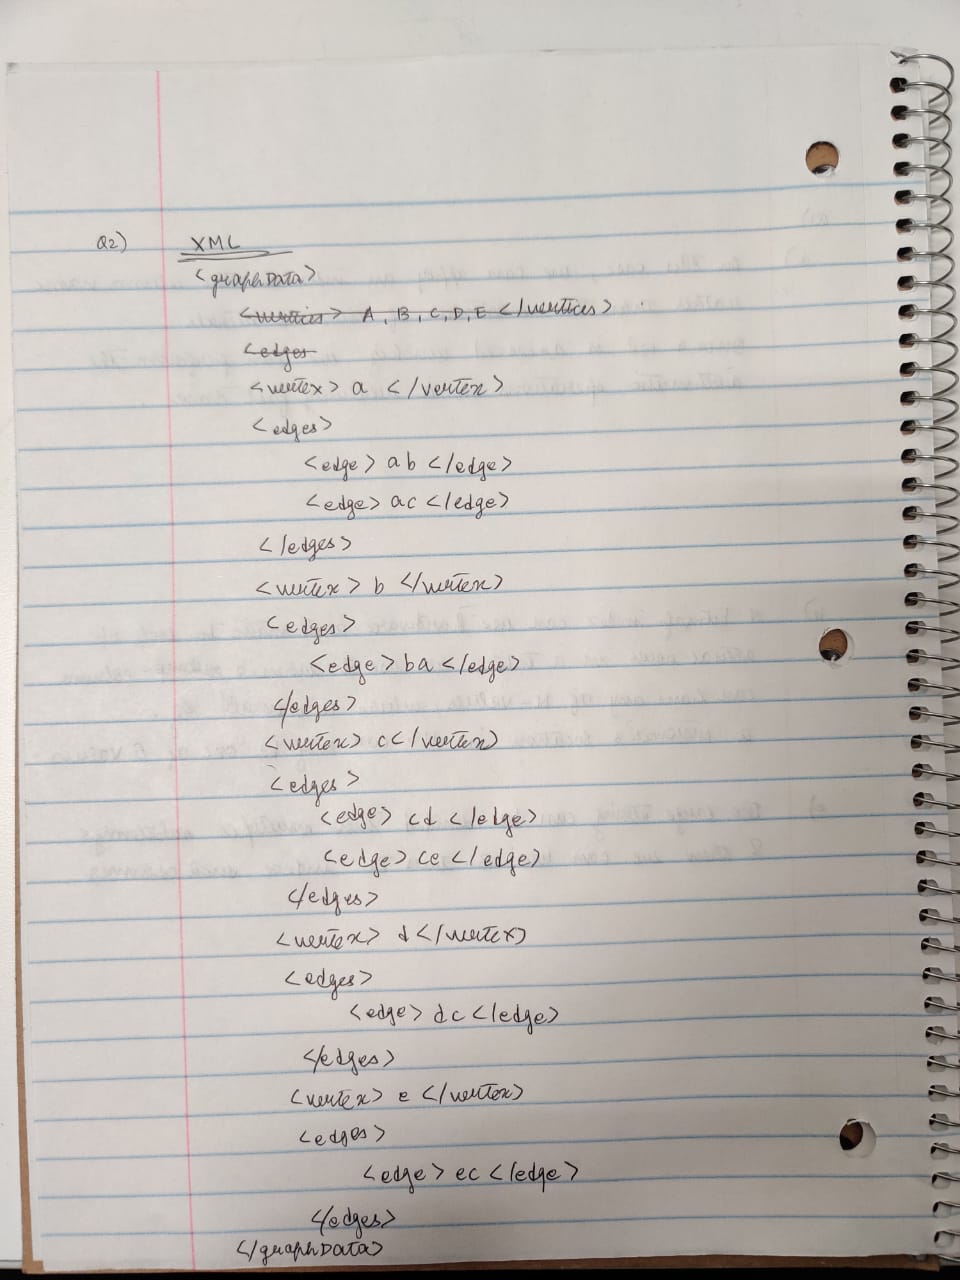 Q2) XML
<graphData>
<vertices> A, B, C, D, E </vertices>
<edges
<vertex> a </vertex>
<edges>
<edge> ab </edge>
<edge> ac </edge>
</edges>
<vertex> b </vertex>
<edges>
<edge> ba </edge>
</edges>
<vertex> c </vertex>
<edges>
<edge> cd </edge>
<edge> ce </edge>
</edges>
<vertex> d </vertex>
<edges>
<edge> dc </edge>
</edges>
<vertex> e </vertex>
<edges>
<edge> ec </edge>
</edges>
</graphData>